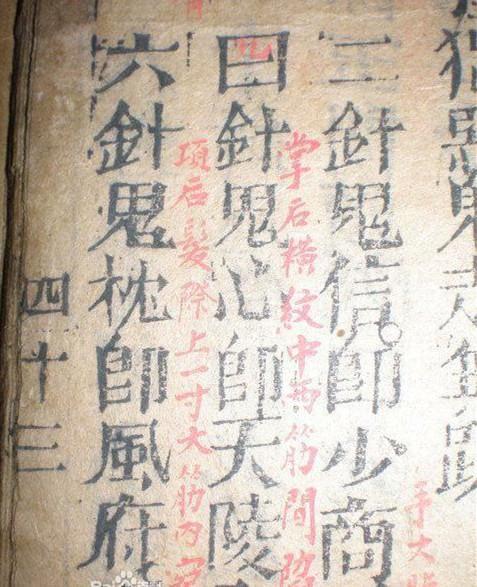 手大
二針鬼信即少商
掌后横紋中两筋間陷
四針鬼心即天陵
項后髮際上一寸大筋内
六針鬼枕即風府
四十三